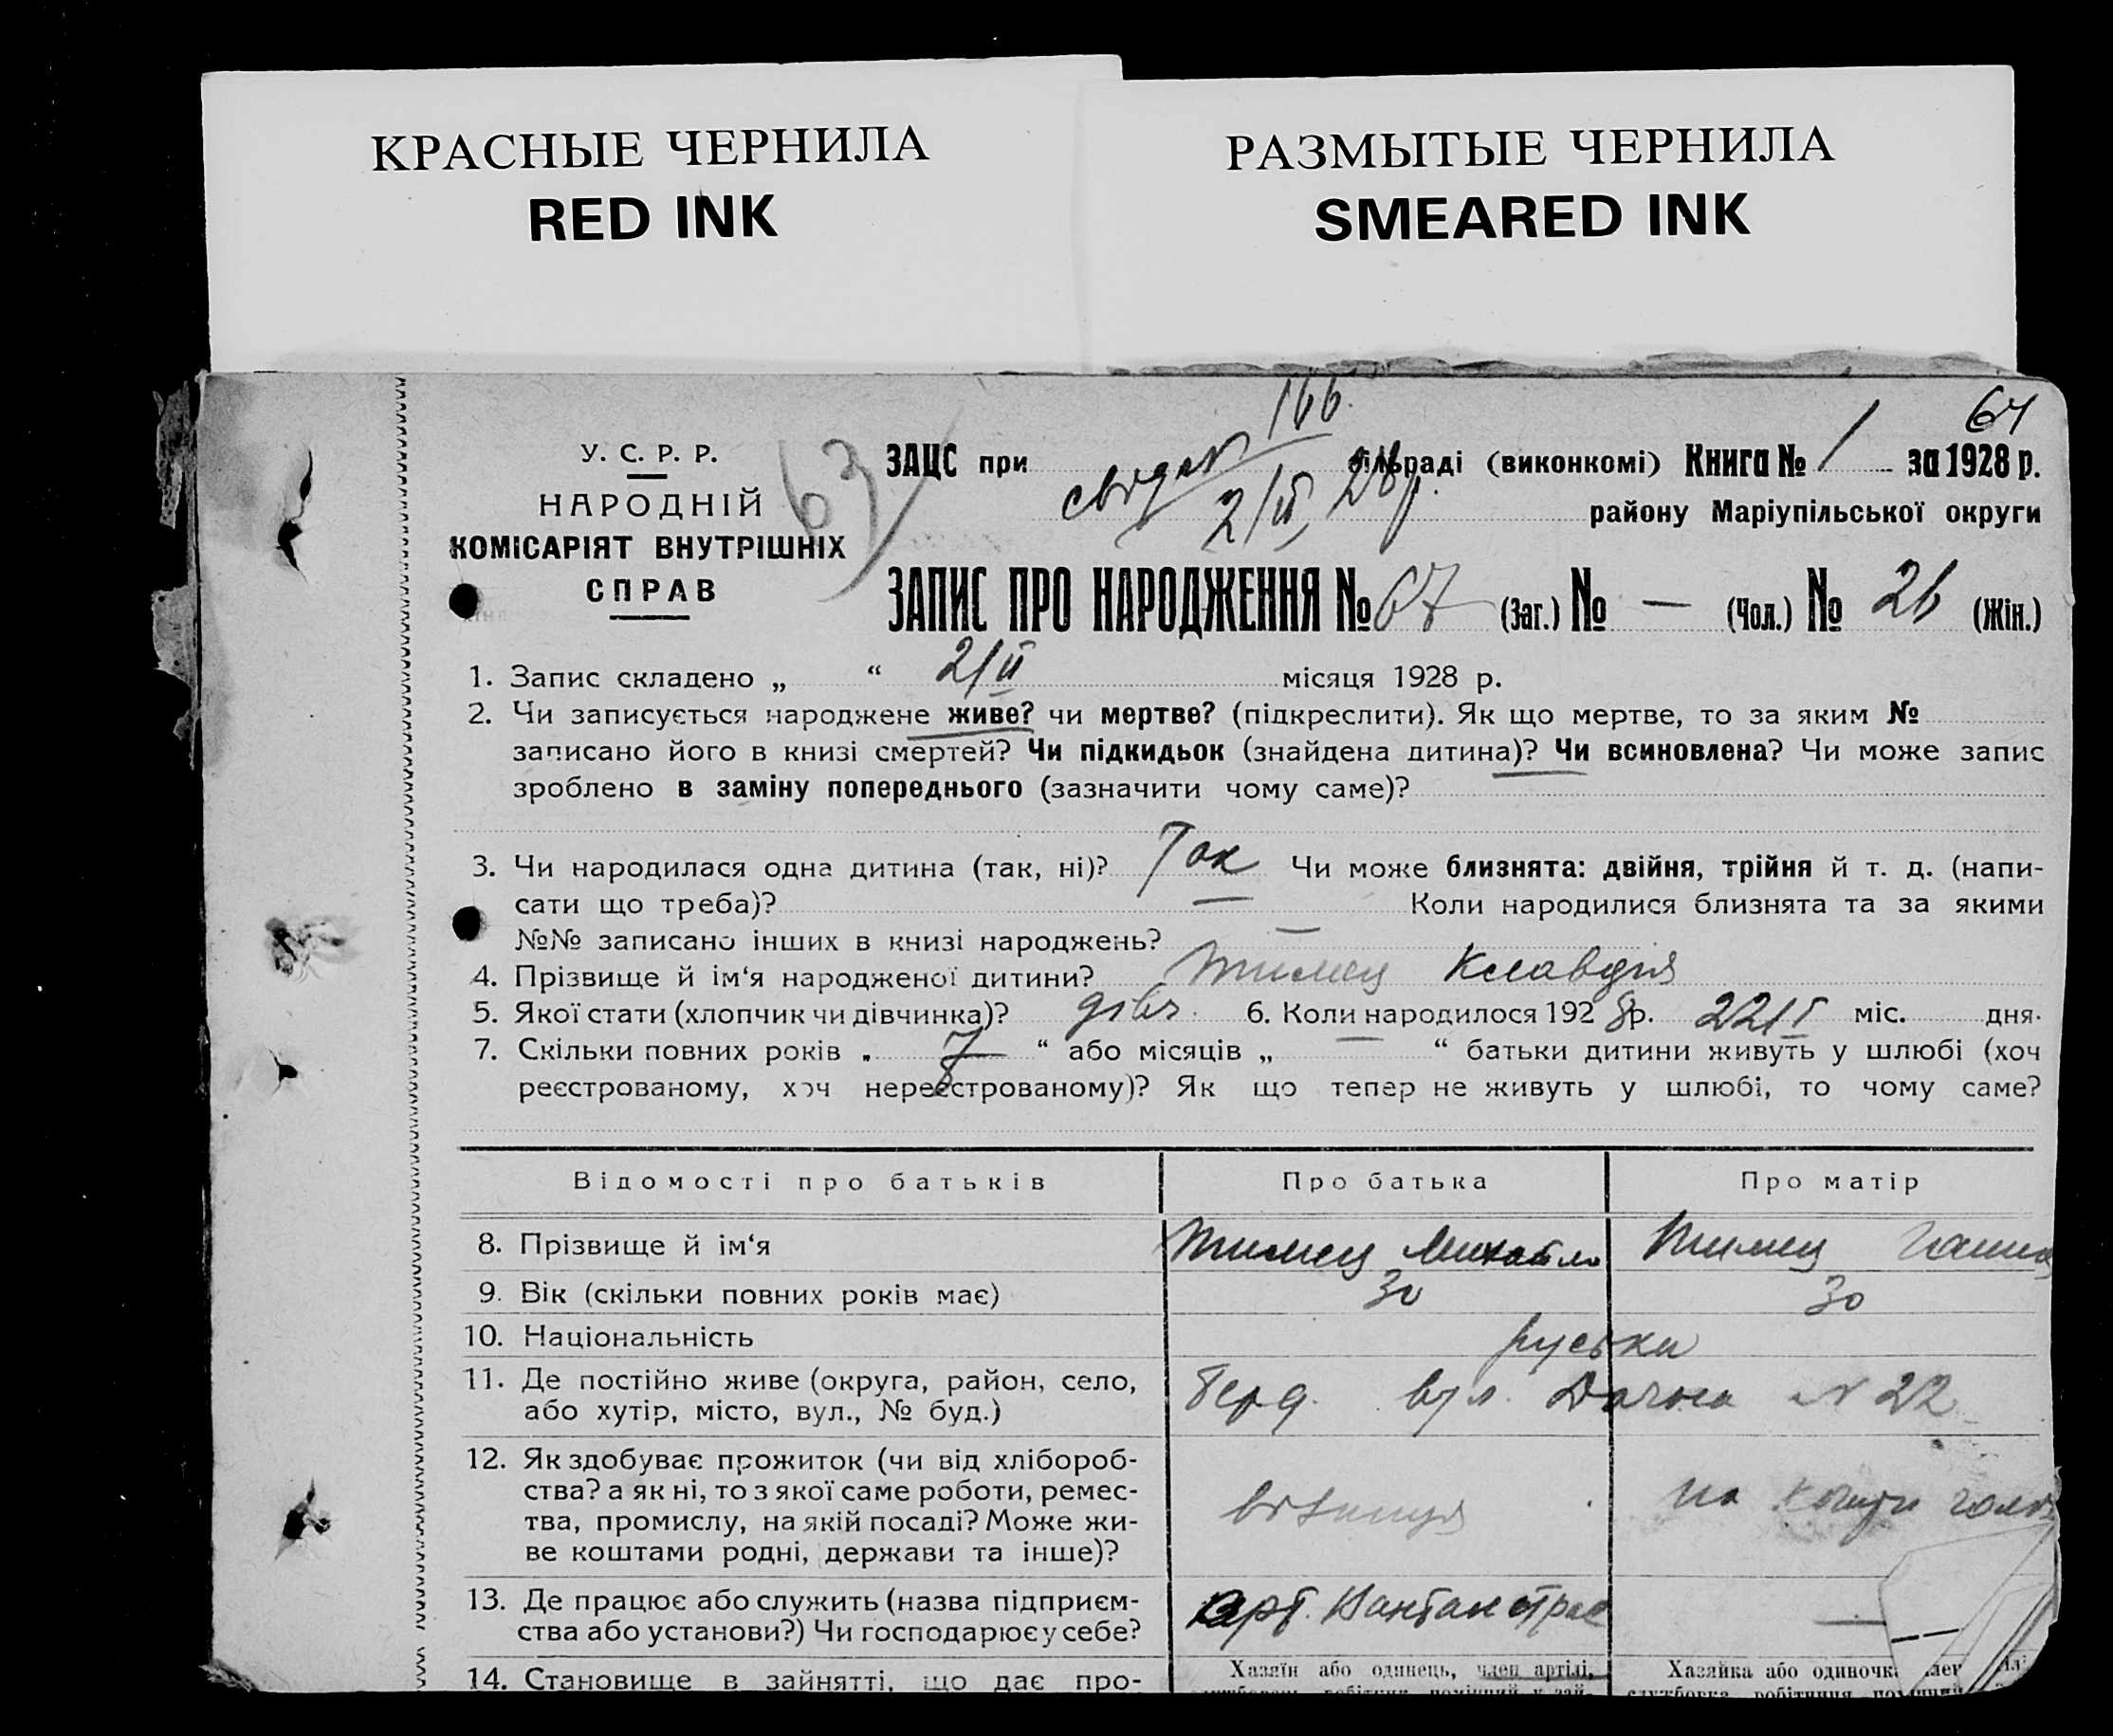 КРАСНЫЕ ЧЕРНИЛА
RED INK
РАЗМЫТЫЕ ЧЕРНИЛА
SMEARED INK
166.
64
63
У. С. Р. Р.
НАРОДНІЙ
КОМІСАРІЯТ ВНУТРІШНІХ
СПРАВ
ЗАЦС при сільраді (виконкомі) Книга № 1 за 1928 р.
2/II 28 р.
району Маріупільської округи
ЗАПИС ПРО НАРОДЖЕННЯ № 67 (Заг.) № — (Чол.) № 26 (Жін.)
1. Запис складено „ “ 2/II місяця 1928 р.
2. Чи записується народжене живе? чи мертве? (підкреслити). Як що мертве, то за яким №
записано його в книзі смертей? Чи підкидьок (знайдена дитина)? Чи всиновлена? Чи може запис
зроблено в заміну попереднього (зазначити чому саме)?
3. Чи народилася одна дитина (так, ні)? Так Чи може близнята: двійня, трійня й т. д. (напи-
сати що треба)? — Коли народилися близнята та за якими
№№ записано інших в книзі народжень? —
4. Прізвище й ім‘я народженої дитини? Клавдія
5. Якої стати (хлопчик чи дівчинка)? дівч. 6. Коли народилося 1928 р. 22/I міс. дня.
7. Скільки повних років „ 7 “ або місяців „ — “ батьки дитини живуть у шлюбі (хоч
реєстрованому, хоч нереєстрованому)? Як що тепер не живуть у шлюбі, то чому саме?
Відомості про батьків Про батька Про матір
8. Прізвище й ім‘я Михайло Ганна
9. Вік (скільки повних років має) 30 30
10. Національність руські
11. Де постійно живе (округа, район, село,
або хутір, місто, вул., № буд.) Берд. вул. Дачна № 22
12. Як здобуває прожиток (чи від хлібороб-
ства? а як ні, то з якої саме роботи, ремес-
тва, промислу, на якій посаді? Може жи-
ве коштами родні, держави та інше)?
на кошти
13. Де працює або служить (назва підприєм-
ства або установи?) Чи господарює у себе?
арт. —
14. Становище в зайнятті, що дає про-
Хазяїн або одинець, член артілі,
Хазяйка або одиночка